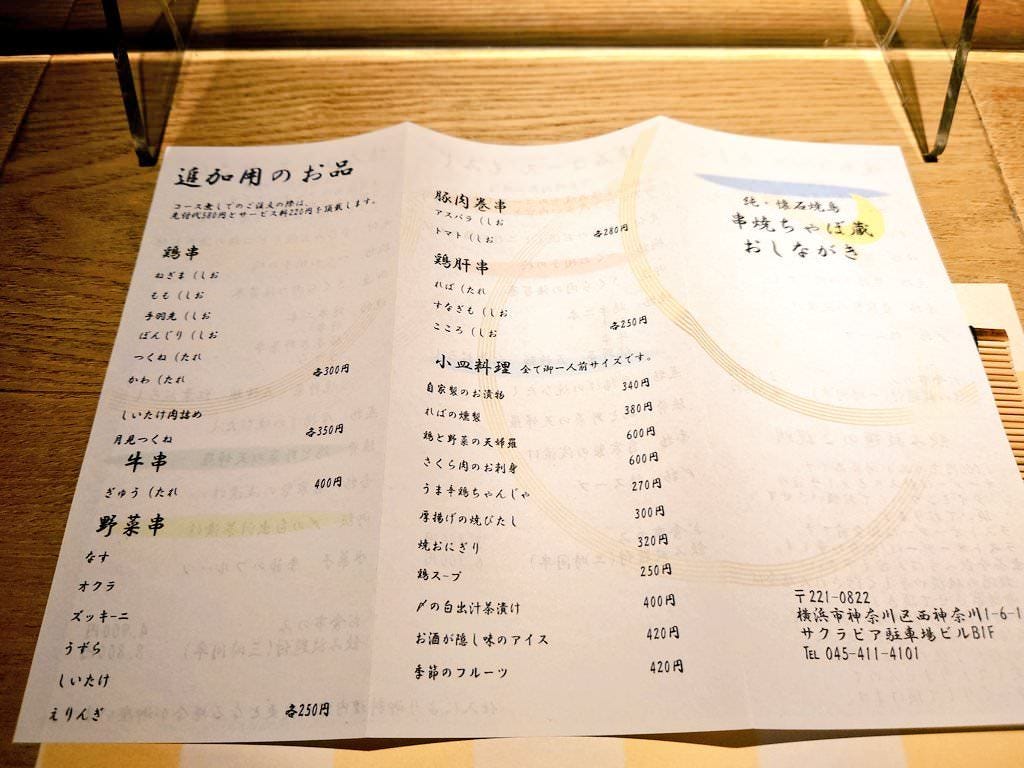 追加用のお品
コース無しでのご注文の際は、
先付代580円とサービス料220円を頂戴します。
鶏串
ねぎま (しお
もも (しお
手羽先 (しお
ぼんじり (しお
つくね (たれ
かわ (たれ
各300円
しいたけ肉詰め
月見つくね
各350円
牛串
ぎゅう (たれ
400円
野菜串
なす
オクラ
ズッキーニ
うずら
しいたけ
えりんぎ
各250円
豚肉巻串
アスパラ (しお
トマト (しお
各280円
鶏肝串
ればー (たれ
すなぎも (しお
こころ (しお
各250円
小皿料理 全て御一人前サイズです。
自家製のお漬物 340円
ればの燻製 380円
鶏と野菜の天婦羅 600円
さくら肉のお刺身 600円
うま辛鶏ちゃんじゃ 270円
厚揚げの焼びたし 300円
焼おにぎり 320円
鶏スープ 250円
〆の白出汁茶漬け 400円
お酒が隠し味のアイス 420円
季節のフルーツ 420円
純・懐石焼鳥
串焼ちゃぼ蔵
おしながき
〒221-0822
横浜市神奈川区西神奈川1-6-1
サクラピア駐車場ビルB1F
TEL 045-411-4101